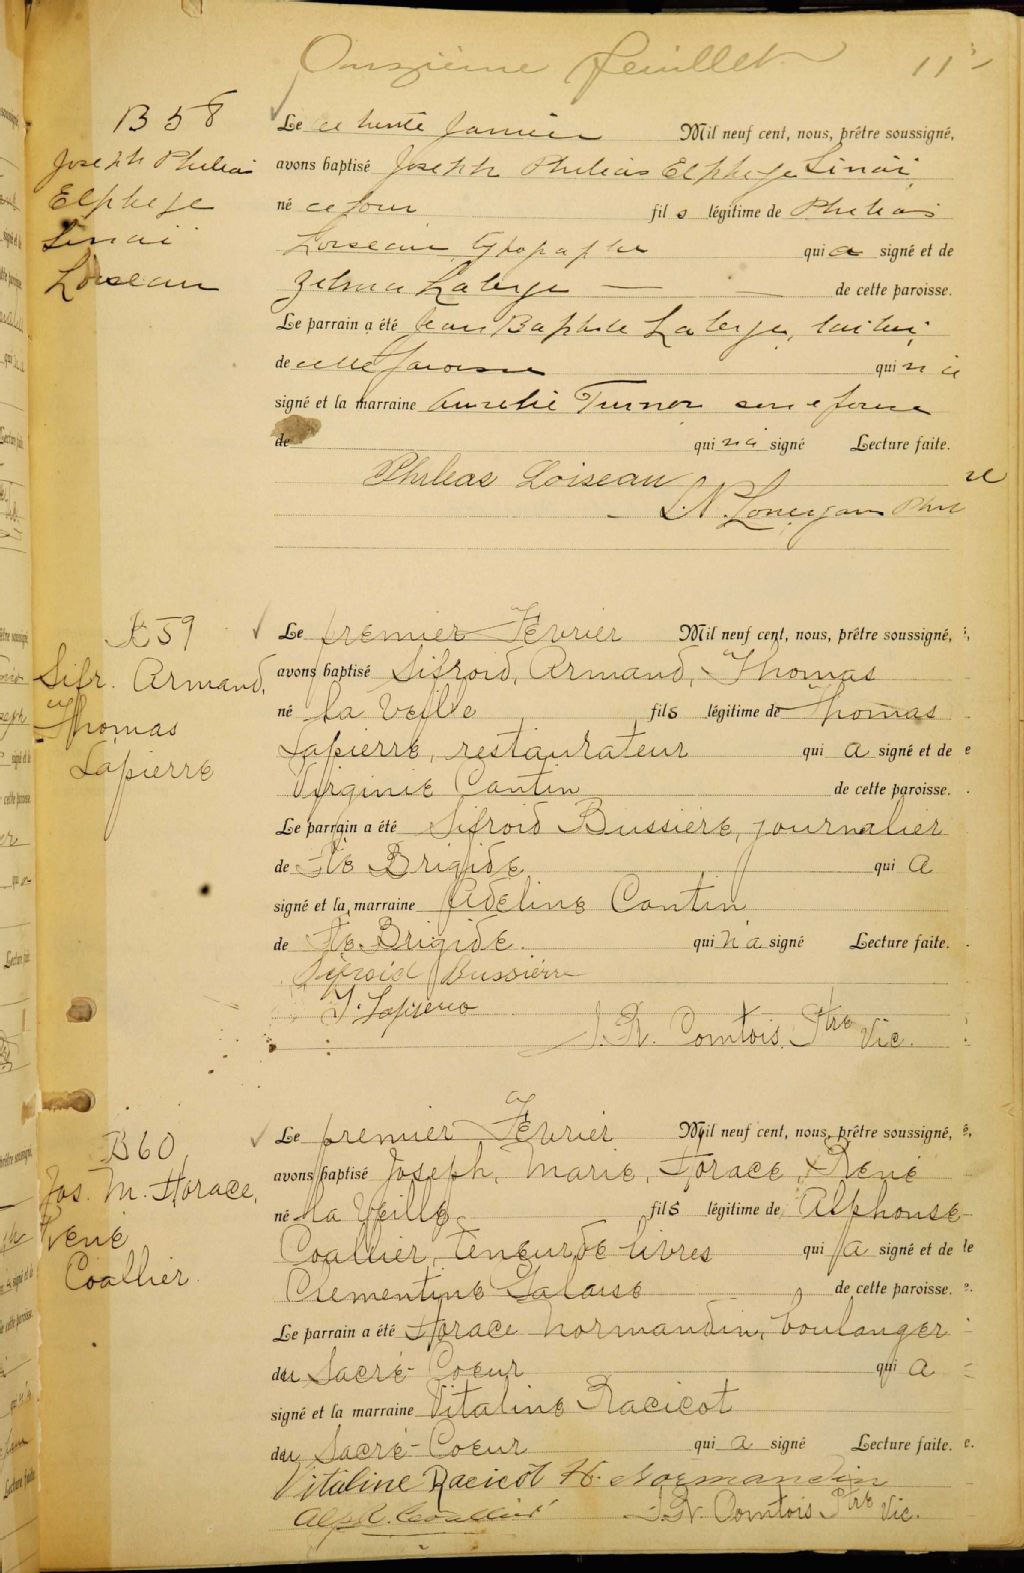 Onzième feuillet 11
B 58
Joseph Phileas
Elphege
Sinaï
Loiseau
Le ce trente Janvier Mil neuf cent, nous, prêtre soussigné,
avons baptisé Joseph Phileas Elphege Sinaï
né ce jour fils légitime de Phileas
Loiseau typographe qui a signé et de
Zelma Laberge de cette paroisse.
Le parrain a été Jean Baptiste Laberge,
de cette paroisse qui n'a
signé et la marraine Aurelie Turner son epouse
de qui n'a signé Lecture faite.
Phileas Loiseau
L.N. Lonergan Ptre
B 59
Sifr. Armand,
Thomas
Lapierre
Le premier Fevrier Mil neuf cent, nous, prêtre soussigné,
avons baptisé Sifroid, Armand, Thomas
né la veille fils légitime de Thomas
Lapierre, restaurateur qui a signé et de
Virginie Cantin de cette paroisse.
Le parrain a été Sifroid Bussiere, journalier
de Ste Brigide qui a
signé et la marraine Adeline Cantin
de Ste. Brigide. qui n'a signé Lecture faite.
Sifroid Bussière
T. Lapierre
J.N. Comtois. Ptre Vic.
B 60
Jos. M. Horace,
René
Coallier.
Le premier Fevrier Mil neuf cent, nous, prêtre soussigné,
avons baptisé Joseph, Marie, Horace, René
né la veille fils légitime de Alphonse
Coallier, teneur de livres qui a signé et de
Clementine Galaise de cette paroisse.
Le parrain a été Horace Normandin, boulanger
du Sacré-Coeur qui a
signé et la marraine Vitaline Racicot
du Sacré-Coeur qui a signé Lecture faite.
Vitaline Racicot H. Normandin
Alph. Coallier J.N. Comtois Ptre Vic.